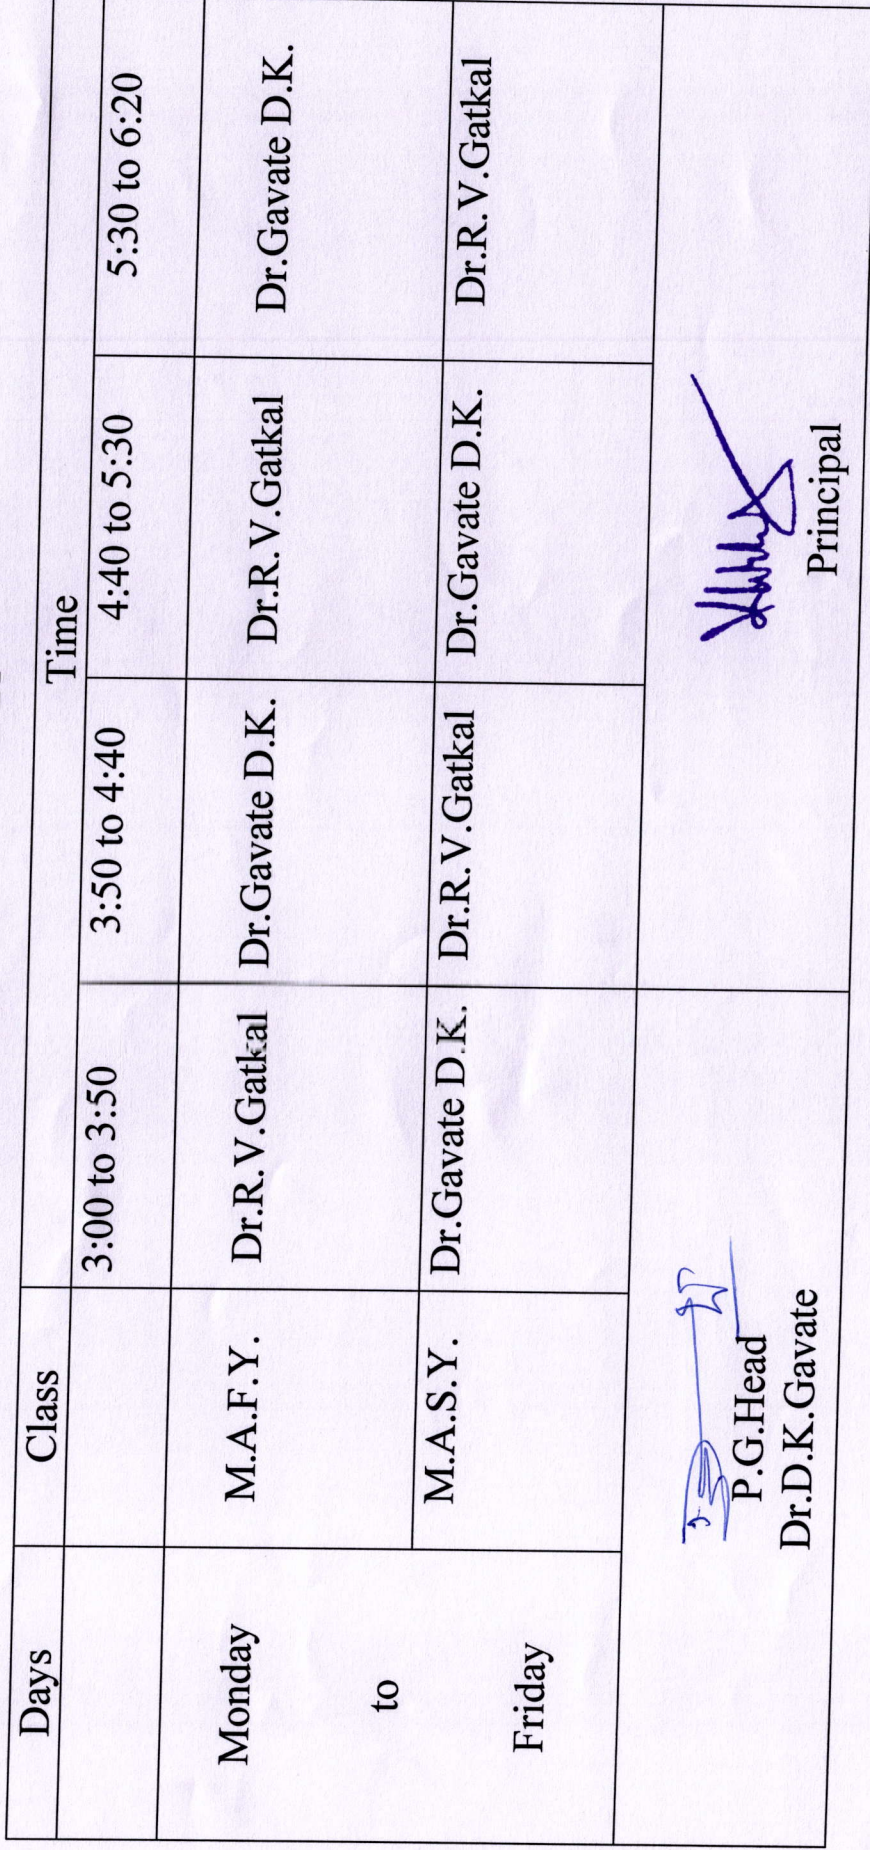 Days Class Time
3:00 to 3:50 3:50 to 4:40 4:40 to 5:30 5:30 to 6:20
Monday M.A.F.Y. Dr.R.V.Gatkal Dr.Gavate D.K. Dr.R.V.Gatkal Dr.Gavate D.K.
to
Friday M.A.S.Y. Dr.Gavate D.K. Dr.R.V.Gatkal Dr.Gavate D.K. Dr.R.V.Gatkal
P.G.Head
Dr.D.K.Gavate
Principal